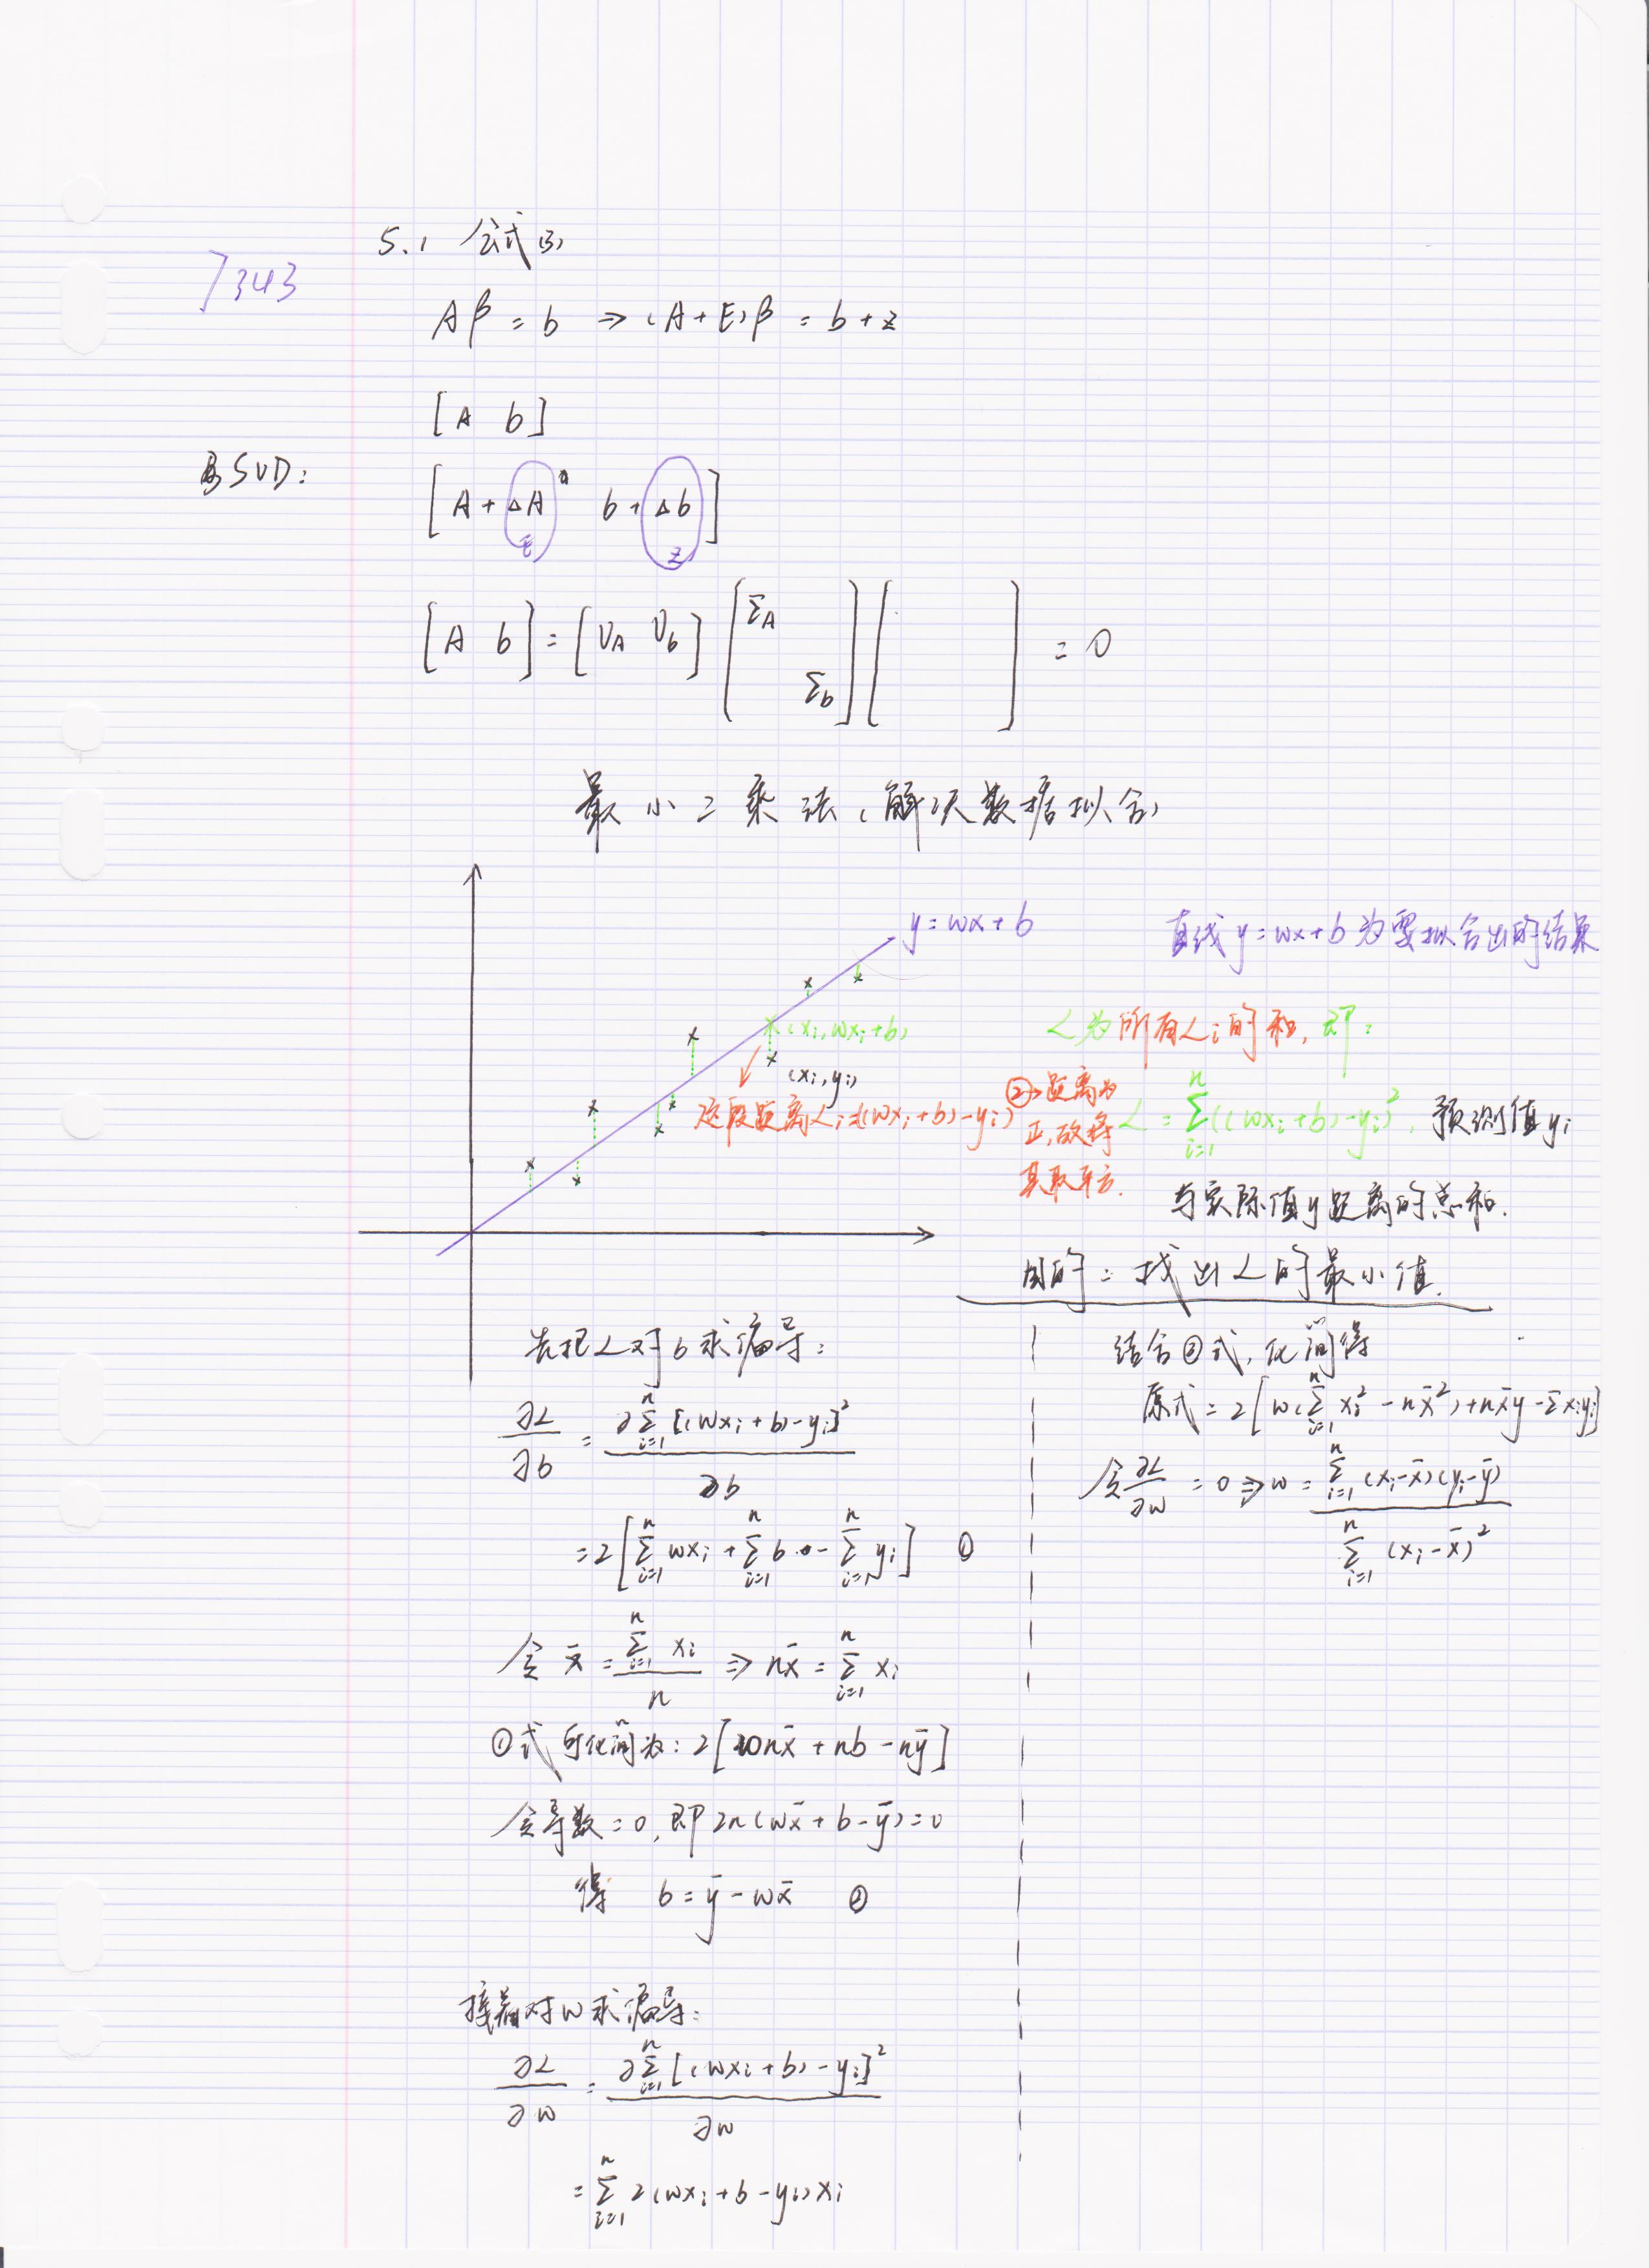 5.1 公式(3)
7343
Aβ = b ⇒ (A+E)β = b+z
[A b]
SVD:
[A+ΔA b+Δb]
E z
[A b] = [U_A U_b] [Σ_A Σ_b] [ ] = 0
最小二乘法(解决数据拟合)
y=wx+b
直线y=wx+b为要拟合出的结果
(xi, wxi+b)
(xi, yi)
这段距离Li=(wxi+b)-yi)
L为所有Li的和,即:
②→距离为
正,故将
其取平方.
L = Σ_{i=1}^{n}((wxi+b)-yi)², 预测值yi
与实际值y距离的总和.
目的:找出L的最小值.
先把L对b求偏导:
∂L/∂b = ∂Σ_{i=1}^{n}[(wxi+b)-yi]²/∂b
=2[Σ_{i=1}^{n} wxi + Σ_{i=1}^{n} b - Σ_{i=1}^{n} yi] ①
令 x̄ = Σ_{i=1}^{n} xi / n ⇒ nx̄ = Σ_{i=1}^{n} xi
①式可化简为: 2[wnx̄ + nb - nȳ]
令导数=0, 即2n(wx̄+b-ȳ)=0
得 b=ȳ-wx̄ ②
接着对w求偏导:
∂L/∂w = ∂Σ_{i=1}^{n}[(wxi+b)-yi]²/∂w
= Σ_{i=1}^{n} 2(wxi+b-yi)xi
结合②式,化简得
原式=2[w(Σ_{i=1}^{n} xi² - nx̄²)+nx̄y-Σxiyi]
令∂L/∂w = 0 ⇒ w = Σ_{i=1}^{n}(xi-x̄)(yi-ȳ) / Σ_{i=1}^{n}(xi-x̄)²